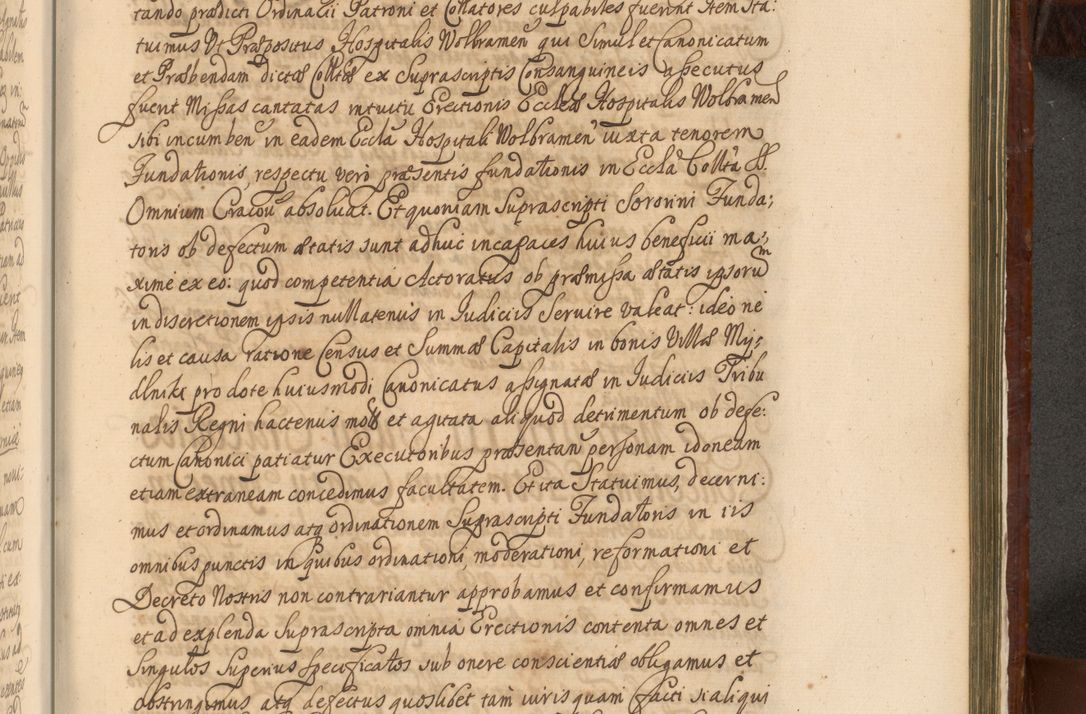 tando prædicti Ordinarii Patroni et Collatores culpabiles fuerint Item Sta:
tuimus Ut Præpositus Hospitalis Wolbramen̄ qui Simul et Canonicatum
et Præbendam dictæ Colltæ ex Suprascriptis Consanguineis assecutus
fuerit Missas cantatas intuitu Erectionis Ecclæ Hospitalis Wolbramen̄
sibi incumben̄ in eadem Eccla Hospitali Wolbramen̄ iuxta tenorem
Fundationis, respectu vero præsentis fundationis in Eccla Collta SS.
Omnium Cracou̅ absoluat. Et quoniam Suprascripti Sororini Funda:
toris ob defectum ætatis sunt adhuc incapaces huius beneficii ma:
xime ex eo: quod competentia Actoratus ob præmissa ætatis ipsorum
indiscretionem ipsis nullatenus in Judiciis Seruire valeat: ideo ne
lis et causa ratione Census et Summæ Capitalis in bonis Villæ My:
dlniki pro dote huiusmodi Canonicatus assignatæ in Judiciis Tribu
nalis Regni hactenus et agitata aliquod detrimentum ob defe:
ctum Canonici patiatur Executoribus præsentan̄ personam idoneam
etiam extraneam concedimus facultatem. Et ita Statuimus, decerni:
mus et ordinamus atq ordinationem Suprascripti Fundatoris in iis
omnibus punctis in quibus ordinationi, moderationi, reformationi et
Decreto Nostris non contrariantur approbamus et confirmamus
et ad explenda Suprascripta omnia Erectionis contenta omnes et
Singulos Superius Specificatos sub onere conscientiæ obligamus et
obstringimus atq defectus quoslibet tam iuris quam facti si aliqui